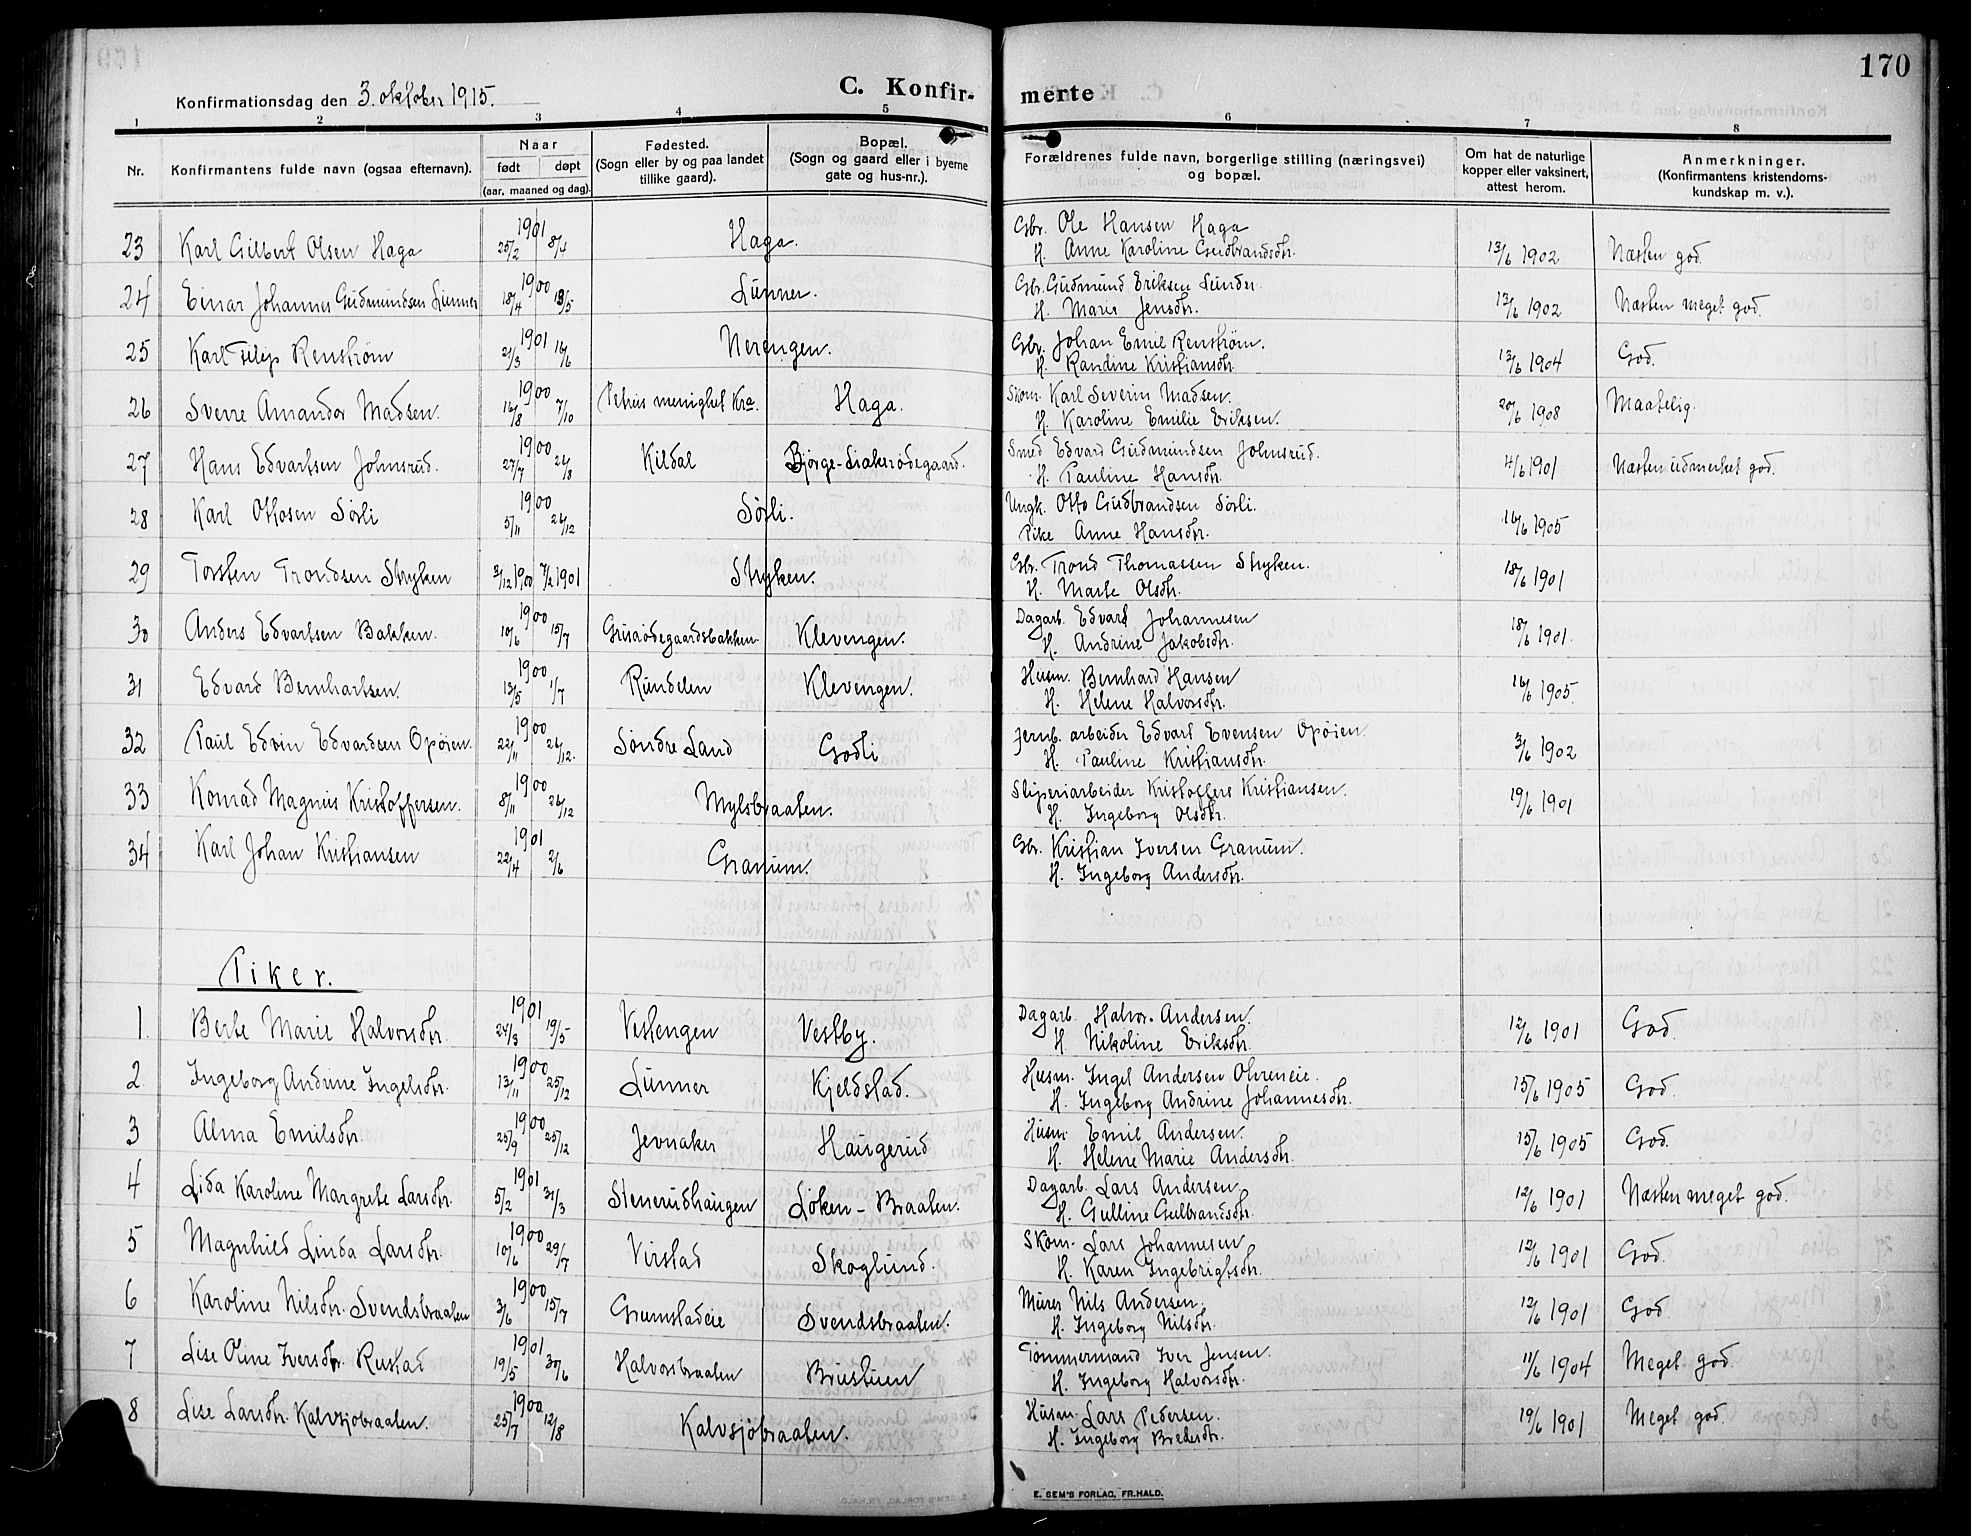 170
Konfirmationsdag den 3. oktober 1915.
C. Konfir-merte
1 2 3 4 5 6 7 8
Nr. Konfirmantens fulde navn (ogsaa efternavn). Naar født døpt (aar, maaned og dag). Fødested. (Sogn eller by og paa landet tillike gaard). Bopæl. (Sogn og gaard eller i byerne gate og hus-nr.). Forældrenes fulde navn, borgerlige stilling (næringsvei) og bopæl. Om hat de naturlige kopper eller vaksinert, attest herom. Anmerkninger. (Konfirmantens kristendoms-kundskap m. v.).
23 Karl Gilbert Olsen Haga 1901 25/2 8/4 Haga. Gbr. Ole Hansen Haga
H. Anne Karoline Gudbrandsdtr. 13/6 1902 Næsten god.
24 Einar Johannes Gudmundsen Lunner 1900 18/4 13/5 Lunner. Gbr. Gudmund Eriksen Lunder
H. Marie Jensdtr. 12/6 1902 Næsten meget god.
25 Karl Filip Renstrøm 1901 21/3 16/6 Nerengen. Gbr. Johan Emil Renstrøm.
H. Randine Kristiansdtr. 13/6 1904 God.
26 Sverre Amandor Madsen. 1900 16/8 7/10 Petrus menighet Kra. Haga. Skom. Karl Severin Madsen.
H. Karoline Emilie Eriksen. 20/6 1908 Maatelig.
27 Hans Edvartsen Johnsrud. 1900 27/7 26/8 Kildal Bjørge-Liaksrødegaard. Smed Edvard Gudmundsen Johnsrud.
H. Pauline Hansdtr. 4/6 1901 Næsten udmerket god.
28 Karl Ottosen Sørli 1900 5/11 26/12 Sørli. Ungk. Otto Gudbrandsen Sørli.
Pike Anne Hansdtr. 16/6 1905
29 Torsten Trondsen Stryken 3/12 1900 7/2 1901 Stryken. Gbr. Trond Thomassen Stryken.
H. Marte Olsdtr. 18/6 1901
30 Anders Edvartsen Bakken. 1900 10/6 15/7 Grinaødegaardsbakken. Klevengen. Dagarb. Edvard Johannesen
H. Andrine Jakobsdtr. 18/6 1901.
31 Edvard Bernhartsen. 1900 13/5 1/7 Rundelen Klevengen. Husm. Bernhard Hansen
H. Helene Halvorsdtr. 16/6 1905.
32 Paul Edvin Edvardsen Opøien. 1900 22/11 26/12. Søndre Land Godli Jernb. arbeider Edvart Evensen Opøien.
H. Pauline Kristiansdtr. 3/6 1902
33 Konrad Magnus Kristoffersen. 1900 8/11 26/12 Mylsbraaten. Sliperiarbeider Kristoffers Kristiansen.
H. Ingeborg Olsdtr. 19/6 1901
34 Karl Johan Kristiansen 1901 22/4 2/6 Granum. Gbr. Kristian Iversen Granum.
H. Ingeborg Andersdtr.
Piker.
1. Berte Marie Halvorsdtr. 1901 24/3 19/5 Vestengen Vestby. Dagarb. Halvor Andersen.
H. Nikoline Eriksdtr. 12/6 1901 God.
2. Ingeborg Andrine Ingelsdtr. 1900 13/11 25/12 Lunner Kjeldstad. Husm. Ingel Andersen Ohreneie.
H. Ingeborg Andrine Johannesdtr. 15/6 1905 God.
3 Alma Emilsdtr. 1900 25/9 25/12 Jevnaker Haugerud Husm. Emil Andersen.
H. Helene Marie Andersdtr. 15/6 1905 God.
4 Lida Karoline Margrete Larsdtr. 1901 5/2 31/3 Stenerudhaugen Løken-Braaten. Dagarb. Lars Andersen
H. Gulline Gulbrandsdtr. 12/6 1901 Næsten meget god.
5 Magnhild Linda Larsdtr. 1900 10/6 29/7 Virstad Skoglund. Skom. Lars Johannesen
H. Karen Ingebrigtsdtr. 12/6 1901 God.
6 Karoline Nilsdtr. Svendsbraaten 1900 3/6 15/7 Grumstadeie Svendsbraaten. Murer Nils Andersen.
H. Ingeborg Nilsdtr. 12/6 1901 God.
7 Lise Oline Iversdtr. Rustad 1901 19/5 30/6 Halvorsbraaten Brustuen Tømmermand Iver Jensen.
H. Ingeborg Halvorsdtr. 11/6 1904 Meget god.
8 Lise Larsdtr. Kalvsjøbraaten. 1900 25/7 12/8 Kalvsjøbraaten. Husm. Lars Pedersen.
H. Ingeborg Bredesdtr. 19/6 1901 Meget god.
E. SEM'S FORLAG, FR.HALD.